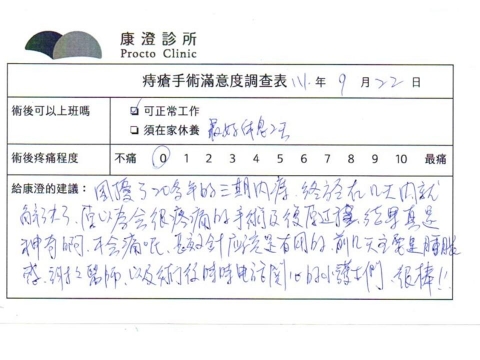 康澄診所
Procto Clinic
痔瘡手術滿意度調查表 111.年 9 月 22 日
術後可以上班嗎
☑ 可正常工作
□ 須在家休養 最好休息2天
術後疼痛程度 不痛 0 1 2 3 4 5 6 7 8 9 10 最痛
給康澄的建議：困擾了20多年的三期內痔，終於在幾天內就
解決了，原以為會很疼痛的手術及復原過程，結果真是
神奇啊，不會痛呢，長效針應該是有用的，前幾天主要是腫脹
感，謝謝醫師，以及術後時時電話關心的小護士們，很棒!!